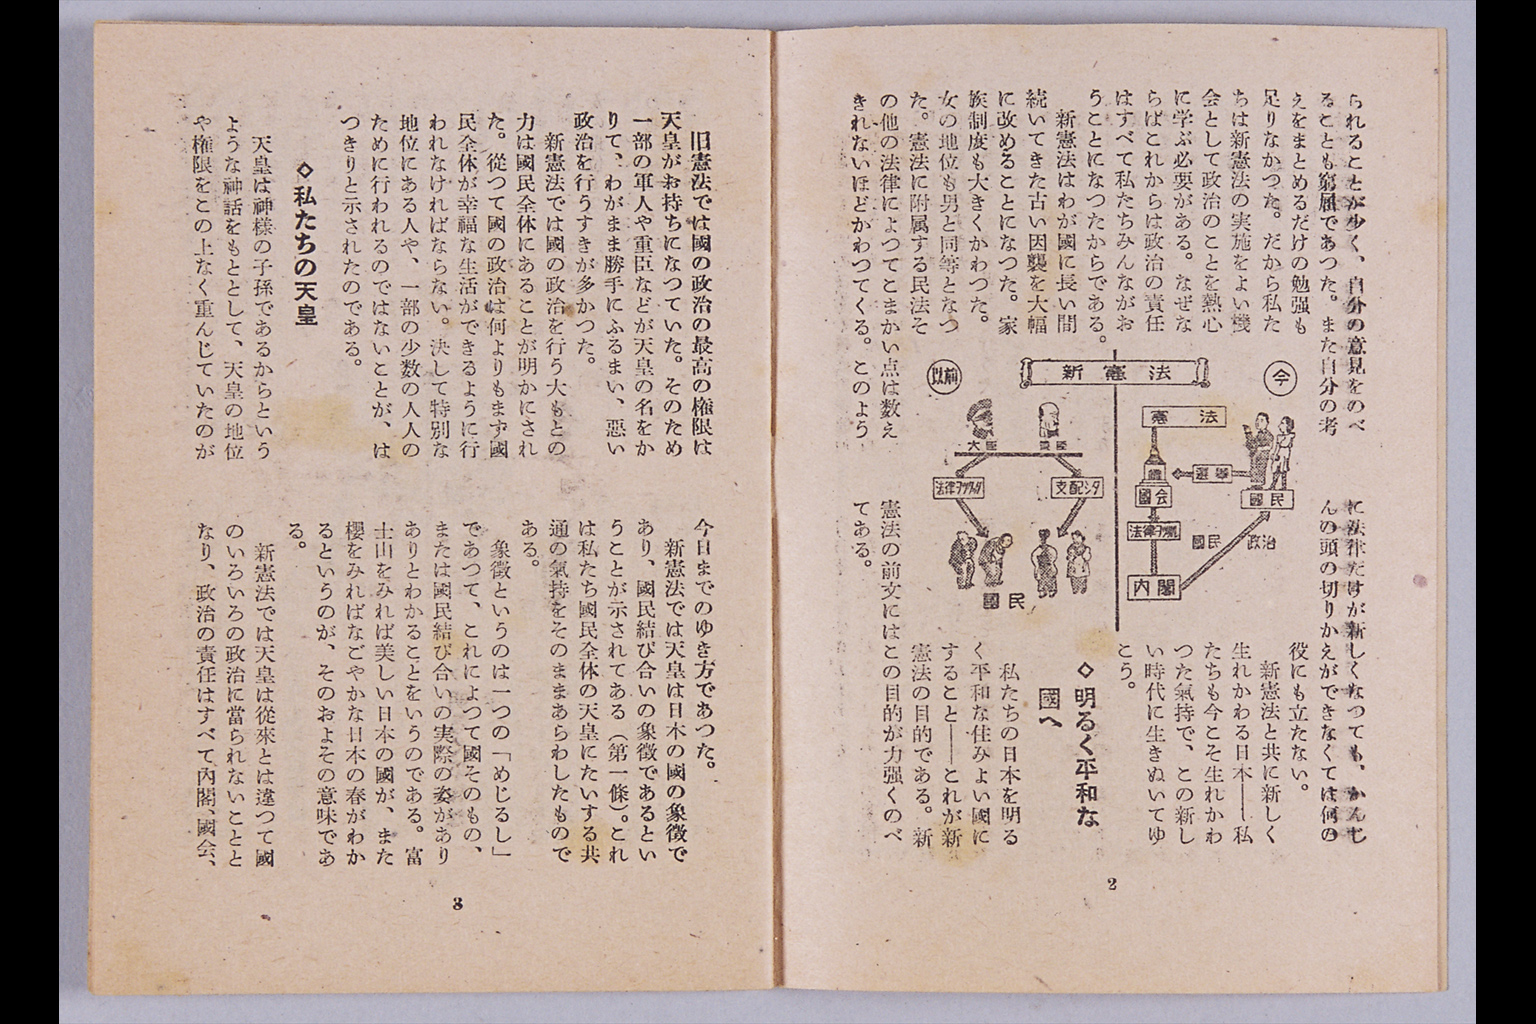 られることが少く、自分の意見をのべ
ることも窮屈であつた。また自分の考
えをまとめるだけの勉强も
足りなかつた。だから私た
ちは新憲法の実施をよい機
会として政治のことを熱心
に学ぶ必要がある。なぜな
らばこれからは政治の責任
はすべて私たちみんながお
うことになつたからである。
新憲法はわが國に長い間
続いてきた古い因襲を大幅
に改めることになつた。家
族制度も大きくかわつた。
女の地位も男と同等となつ
た。憲法に附属する民法そ
の他の法律によつてこまかい点は数え
きれないほどかわつてくる。このよう
新憲法
今
憲法
選挙
國会
國民
國民
政治
内閣
以前
大臣
支配シタ
國民
に法律だけが新しくなつても、かんじ
んの頭の切りかえができなくては何の
役にも立たない。
新憲法と共に新しく
生れかわる日本――私
たちも今こそ生れかわ
つた氣持で、この新し
い時代に生きぬいてゆ
こう。
◇明るく平和な
國へ
私たちの日本を明る
く平和な住みよい國に
すること――これが新
憲法の目的である。新
憲法の前文にはこの目的が力强くのべ
てある。
2
旧憲法では國の政治の最高の権限は
天皇がお持ちになつていた。そのため
一部の軍人や重臣などが天皇の名をか
りて、わがまま勝手にふるまい、惡い
政治を行うすきが多かつた。
新憲法では國の政治を行う大もとの
力は國民全体にあることが明かにされ
た。從つて國の政治は何よりもまず國
民全体が幸福な生活ができるように行
われなければならない。決して特別な
地位にある人や、一部の少数の人人の
ために行われるのではないことが、は
つきりと示されたのである。
◇私たちの天皇
天皇は神様の子孫であるからという
ような神話をもととして、天皇の地位
や権限をこの上なく重んじていたのが
今日までのゆき方であつた。
新憲法では天皇は日本の國の象徴で
あり、國民結び合いの象徴であるとい
うことが示されてある（第一條）。これ
は私たち國民全体の天皇にたいする共
通の氣持をそのままあらわしたもので
ある。
象徴というのは一つの「めじるし」
であつて、これによつて國そのもの、
または國民結び合いの実際の姿があり
ありとわかることをいうのである。富
士山をみれば美しい日本の國が、また
櫻をみればなごやかな日本の春がわか
るというのが、そのおよその意味であ
る。
新憲法では天皇は從來とは違つて國
のいろいろの政治に當られないことと
なり、政治の責任はすべて内閣、國会、
3